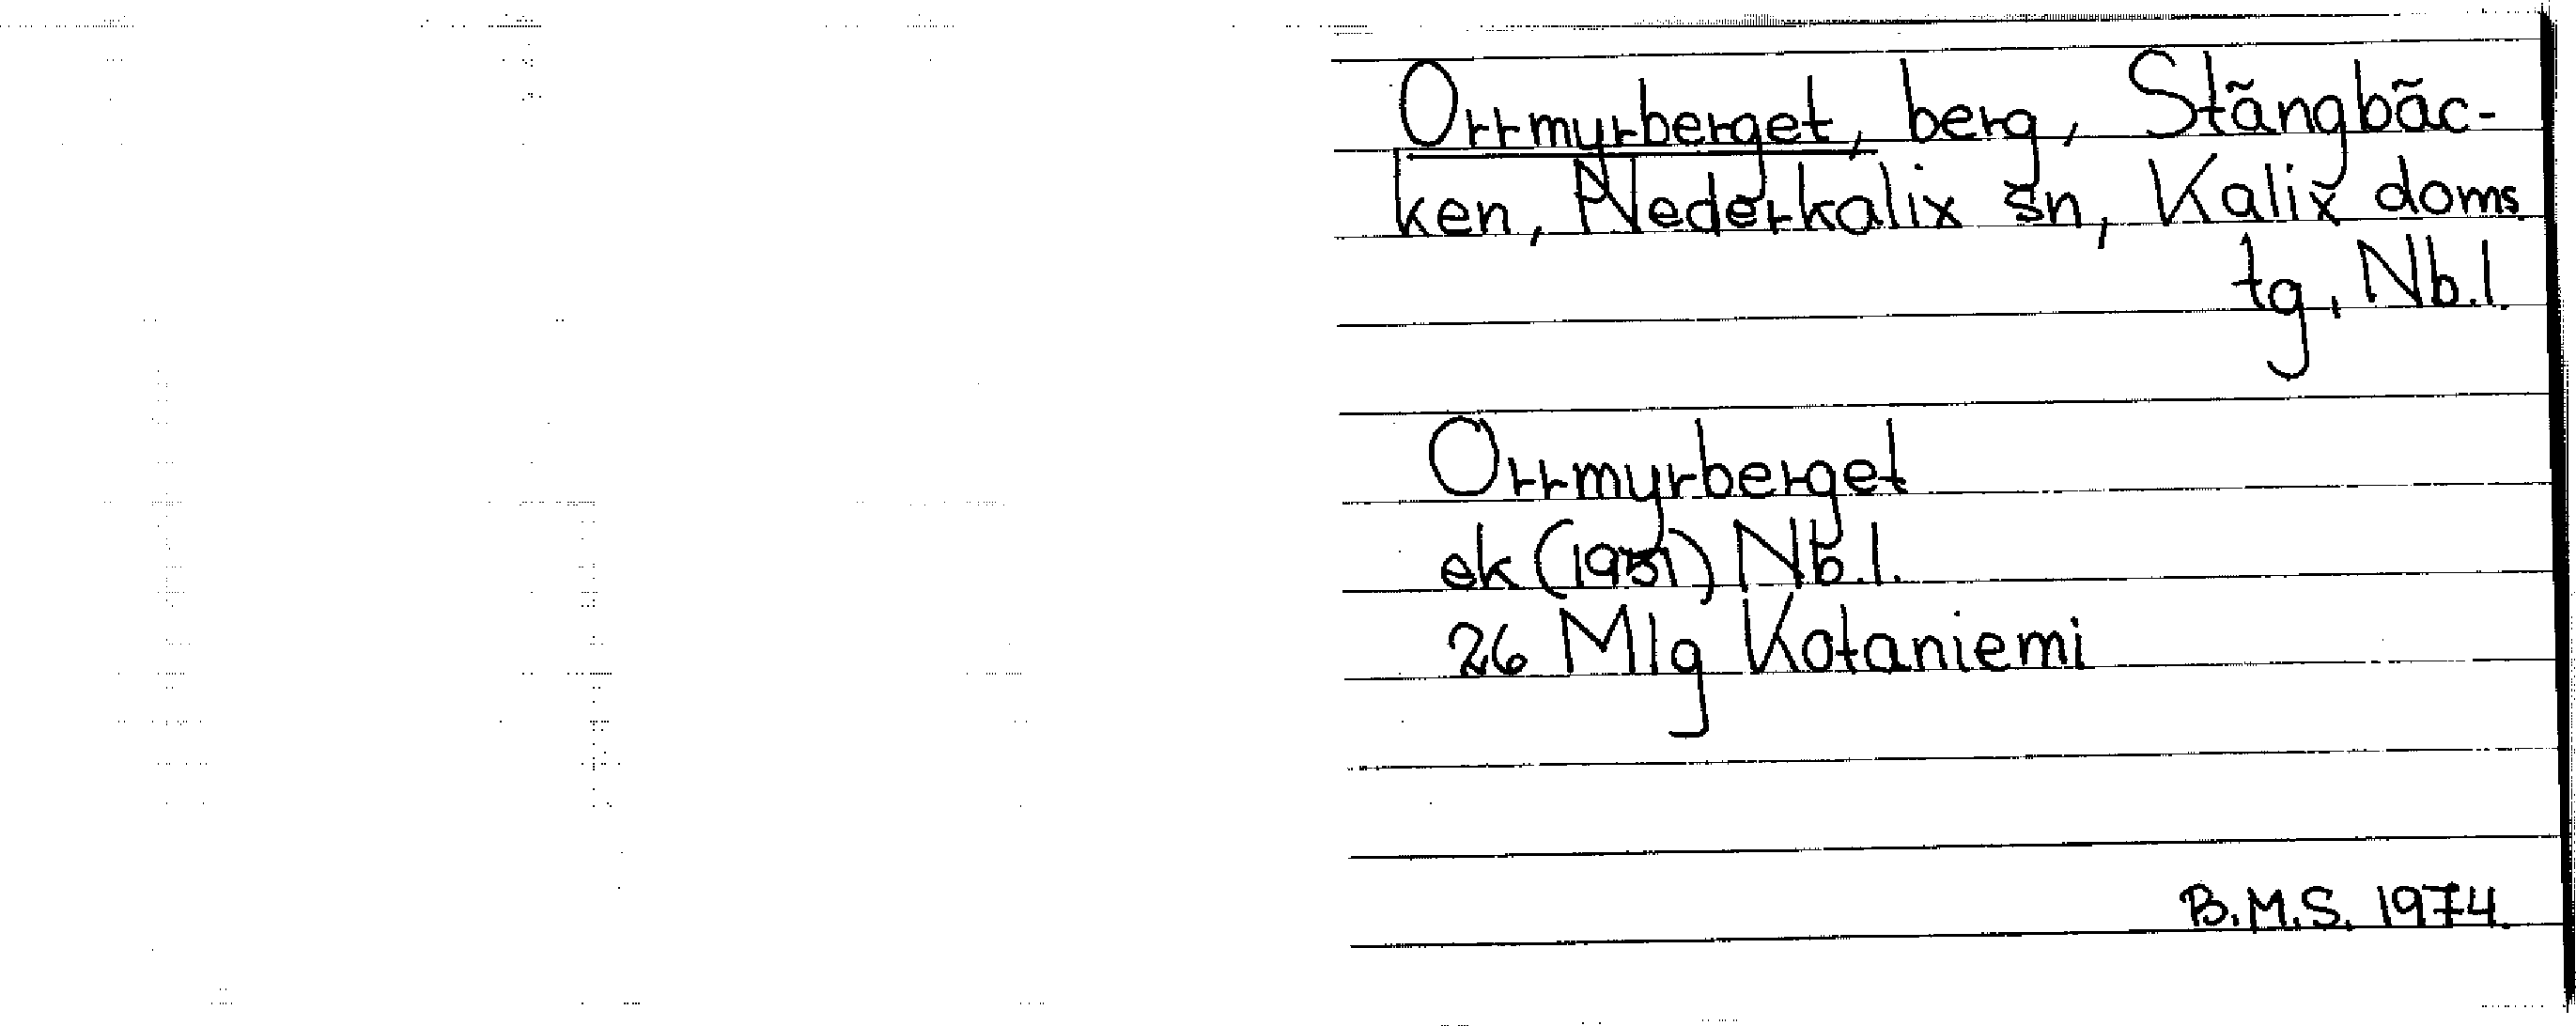 Orrmyrberget, berg, Stãngbãc-
ken, Nederkalix sn, Kalix doms
tg, Nb.l.
Orrmyrberget
ek (1951) Nb.l.
26 Mlg Kotaniemi
B.M.S. 1974.